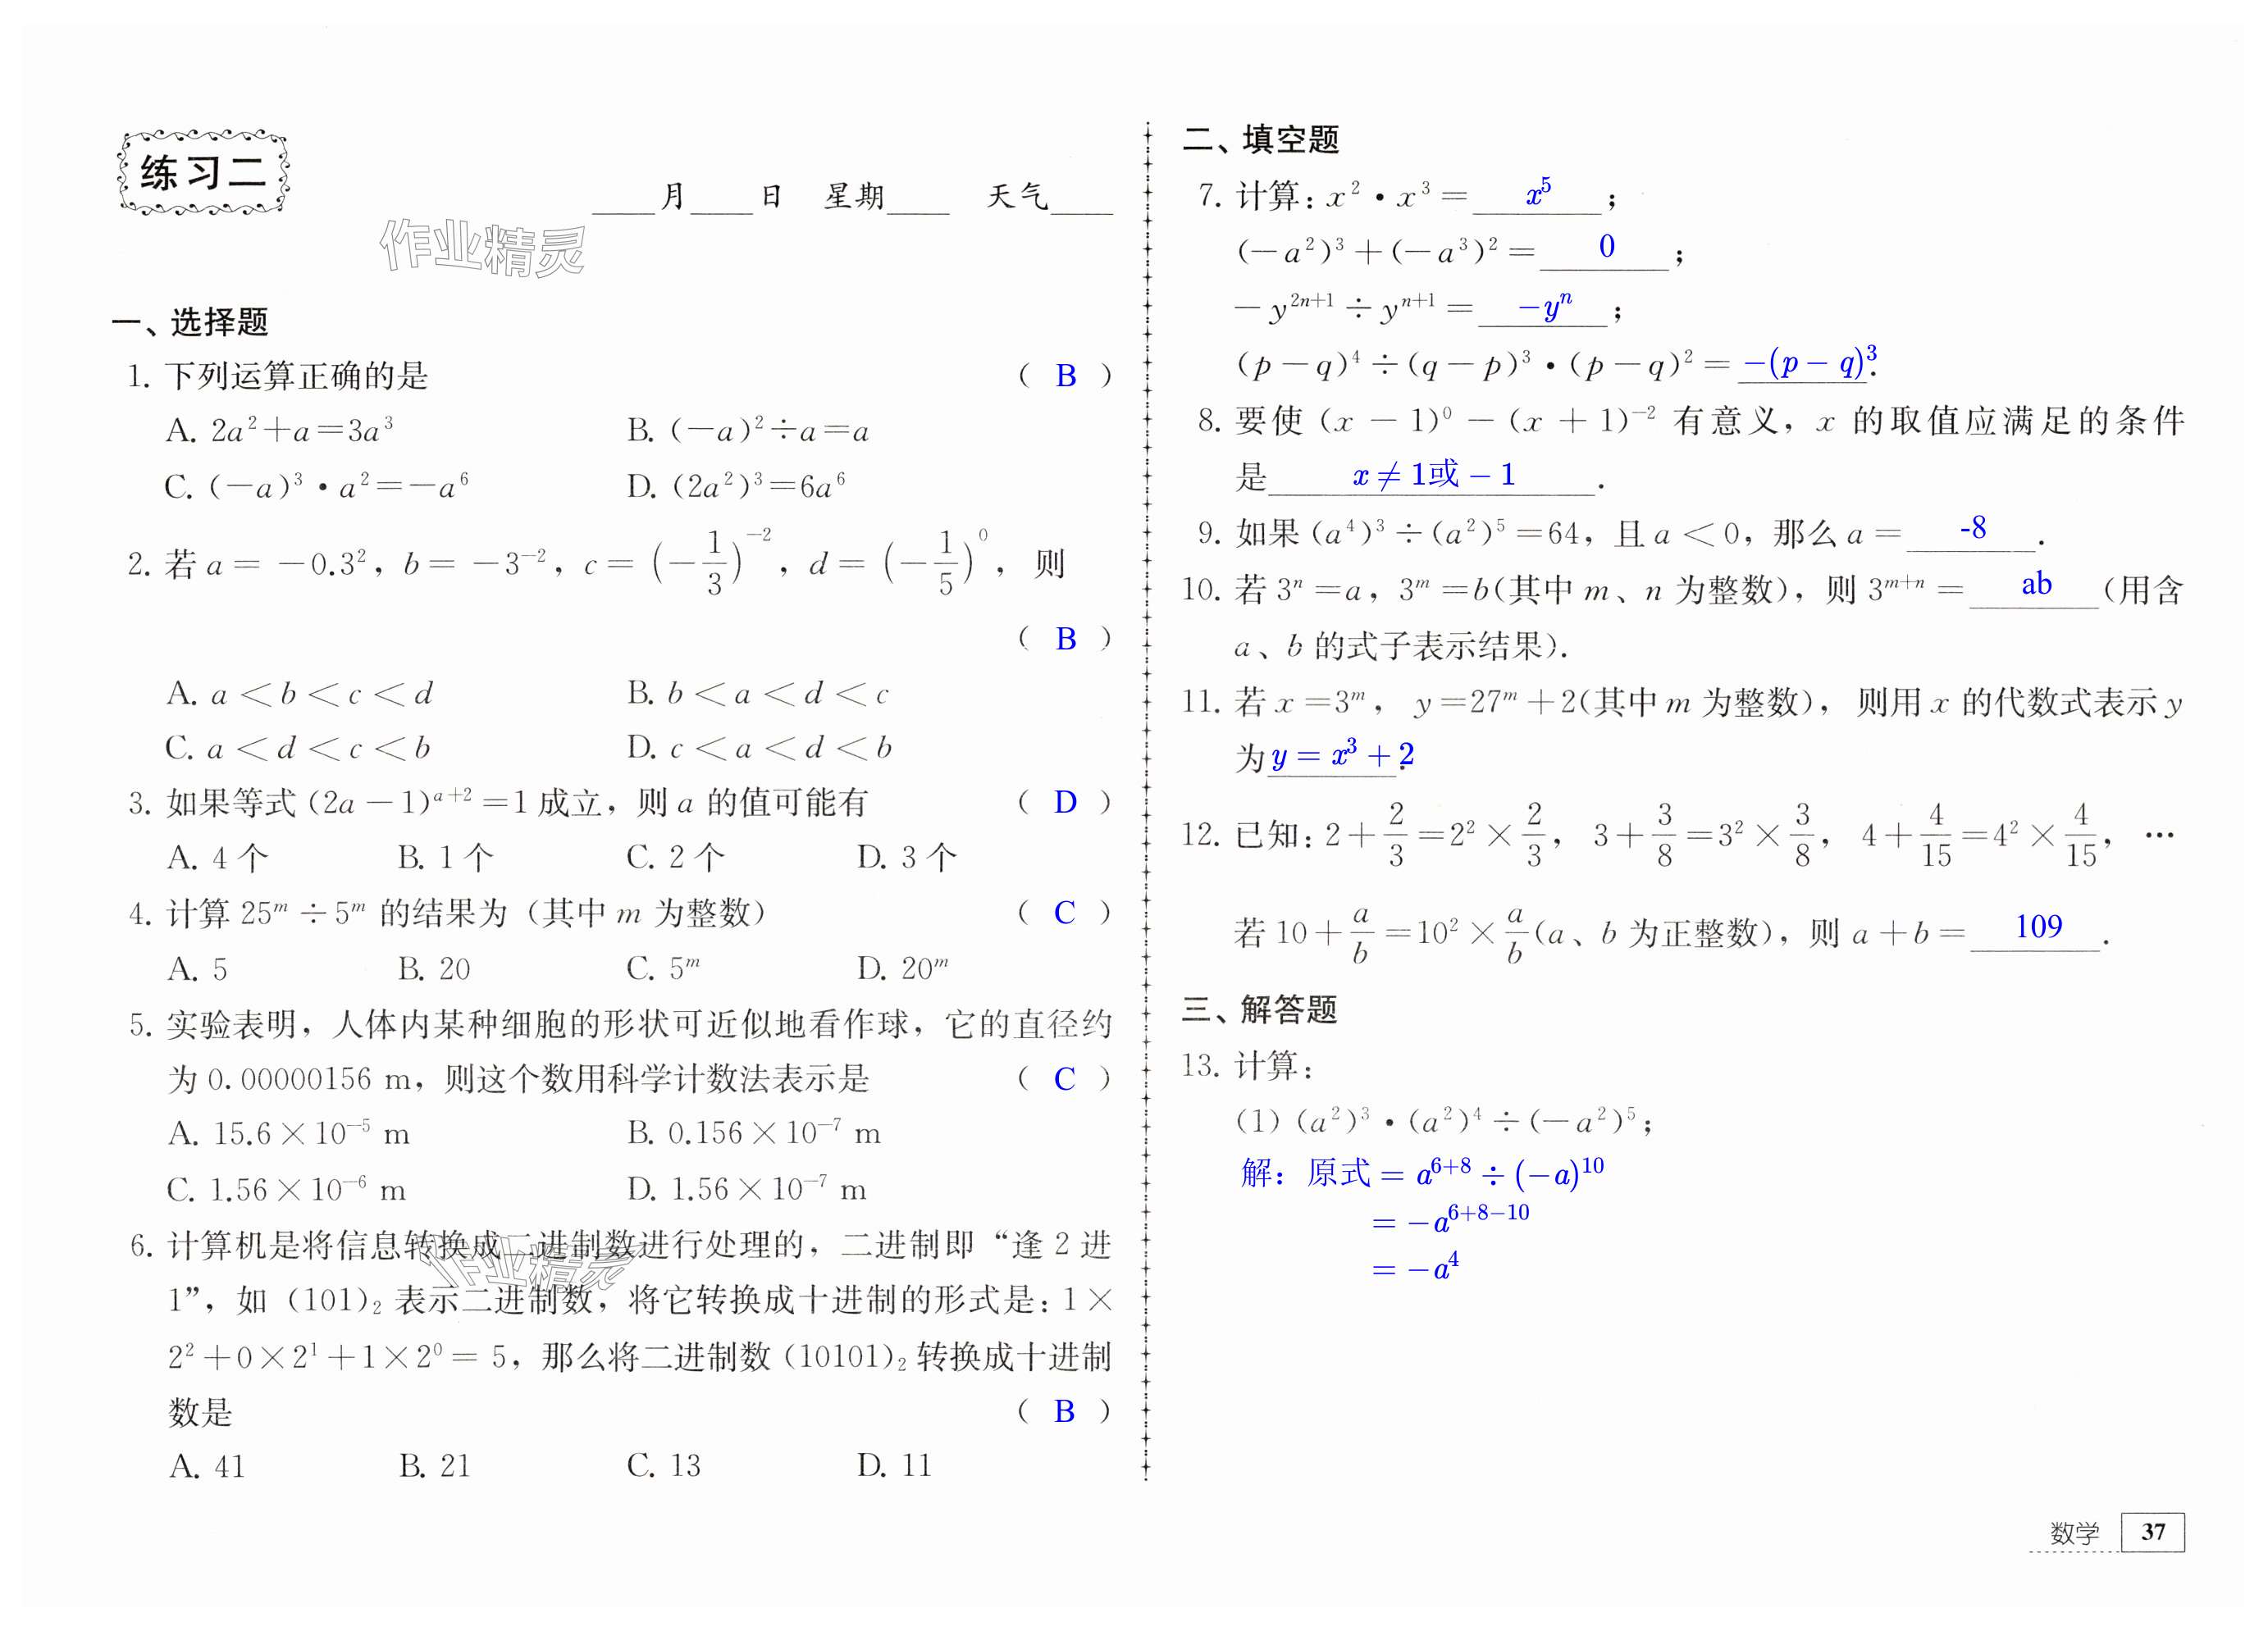 练习二
____月____日 星期____ 天气____
作业精灵
一、选择题
1. 下列运算正确的是 ( B )
A. 2a²+a=3a³ B. (-a)²÷a=a
C. (-a)³·a²=-a⁶ D. (2a²)³=6a⁶
2. 若 a= -0.3², b= -3⁻², c= (-1/3)⁻², d= (-1/5)⁰, 则
( B )
A. a<b<c<d B. b<a<d<c
C. a<d<c<b D. c<a<d<b
3. 如果等式 (2a-1)ᵃ⁺²=1 成立，则 a 的值可能有 ( D )
A. 4个 B. 1个 C. 2个 D. 3个
4. 计算 25ᵐ÷5ᵐ 的结果为（其中 m 为整数） ( C )
A. 5 B. 20 C. 5ᵐ D. 20ᵐ
5. 实验表明，人体内某种细胞的形状可近似地看作球，它的直径约
为 0.00000156 m，则这个数用科学计数法表示是 ( C )
A. 15.6×10⁻⁵ m B. 0.156×10⁻⁷ m
C. 1.56×10⁻⁶ m D. 1.56×10⁻⁷ m
6. 计算机是将信息转换成二进制数进行处理的，二进制即“逢 2 进
作业精灵
1”，如（101)₂ 表示二进制数，将它转换成十进制的形式是：1×
2²+0×2¹+1×2⁰= 5，那么将二进制数 (10101)₂ 转换成十进制
数是 ( B )
A. 41 B. 21 C. 13 D. 11
二、填空题
7. 计算：x²·x³= x⁵ ；
(-a²)³+(-a³)²= 0 ；
-y²ⁿ⁺¹÷yⁿ⁺¹= -yⁿ ；
(p-q)⁴÷(q-p)³·(p-q)²= -(p-q)³.
8. 要使 (x-1)⁰-(x+1)⁻² 有意义，x 的取值应满足的条件
是 x≠1或-1 .
9. 如果 (a⁴)³÷(a²)⁵=64，且 a<0，那么 a= -8 .
10. 若 3ⁿ=a，3ᵐ=b(其中 m、n 为整数)，则 3ᵐ⁺ⁿ= ab (用含
a、b 的式子表示结果).
11. 若 x=3ᵐ， y=27ᵐ+2(其中 m 为整数)， 则用 x 的代数式表示 y
为 y=x³+2.
12. 已知：2+2/3=2²×2/3， 3+3/8=3²×3/8， 4+4/15=4²×4/15， …
若 10+a/b=10²×a/b(a、b 为正整数)，则 a+b= 109 .
三、解答题
13. 计算：
(1) (a²)³·(a²)⁴÷(-a²)⁵；
解：原式= a⁶⁺⁸÷(-a)¹⁰
= -a⁶⁺⁸⁻¹⁰
= -a⁴
数学 37